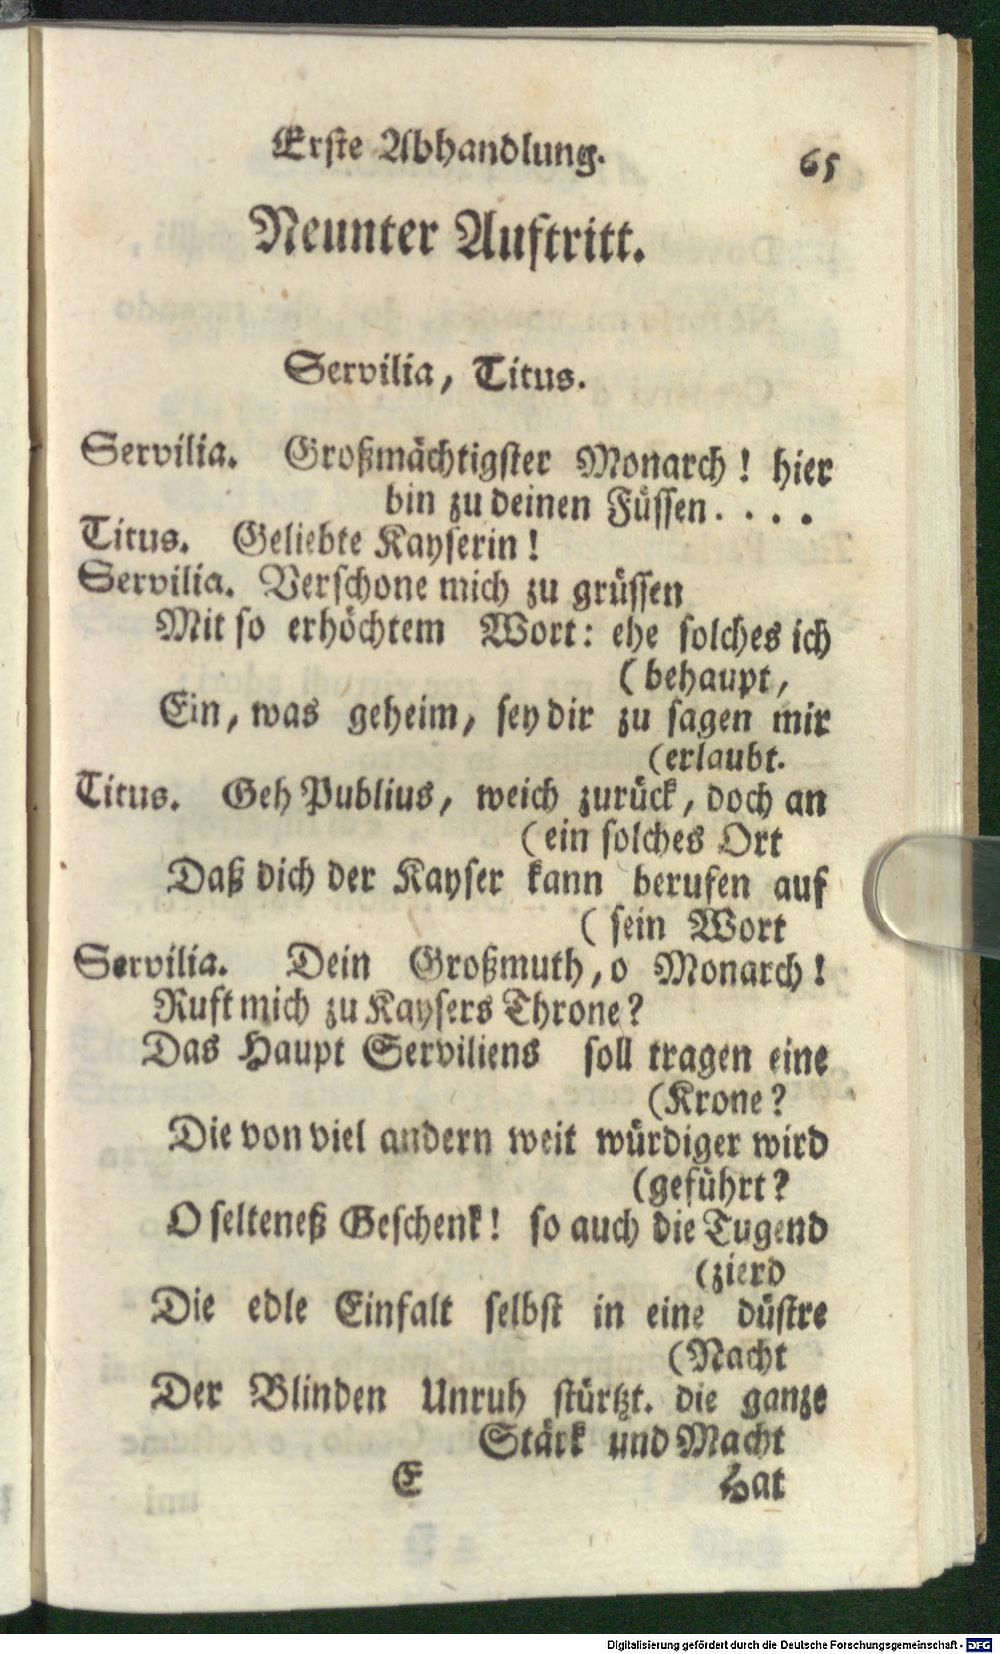 Erste Abhandlung. 65
Neunter Auftritt.
Servilia, Titus.
Servilia. Großmächtigster Monarch! hier
bin zu deinen Füssen. . . .
Titus. Geliebte Kayserin!
Servilia. Verschone mich zu grüssen
Mit so erhöchtem Wort: ehe solches ich
(behaupt,
Ein, was geheim, sey dir zu sagen mir
(erlaubt.
Titus. Geh Publius, weich zurück, doch an
(ein solches Ort
Daß dich der Kayser kann berufen auf
(sein Wort
Servilia. Dein Großmuth, o Monarch!
Ruft mich zu Kaysers Throne?
Das Haupt Serviliens soll tragen eine
(Krone?
Die von viel andern weit würdiger wird
(geführt?
O selteneß Geschenk! so auch die Tugend
(zierd
Die edle Einfalt selbst in eine düstre
(Nacht
Der Blinden Unruh stürtzt. die ganze
Stärk und Macht
E Hat
Digitalisierung gefördert durch die Deutsche Forschungsgemeinschaft - DFG